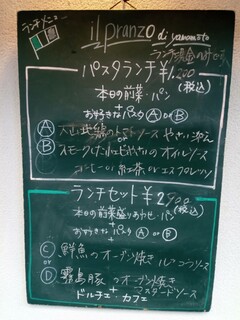 ランチメニュー
il pranzo di yamamoto
ランチ現金のみです
パスタランチ ¥1,200
(税込)
本日の前菜・パン
+
お好きなパスタ Ⓐ or Ⓑ
Ⓐ 大山鶏のトマトソース やさい
or
Ⓑ スモーク やさいのオイルソース
コーヒー or 紅茶 or エスプレッソ
ランチセット ¥2900
(税込)
本日の前菜盛り合わせ・パン
+
お好きなパスタ Ⓐ or Ⓑ
+
Ⓒ 鮮魚のオーブン焼き ソース
or
Ⓓ 霧島豚のオーブン焼き
マスタードソース
+
ドルチェ・カフェ